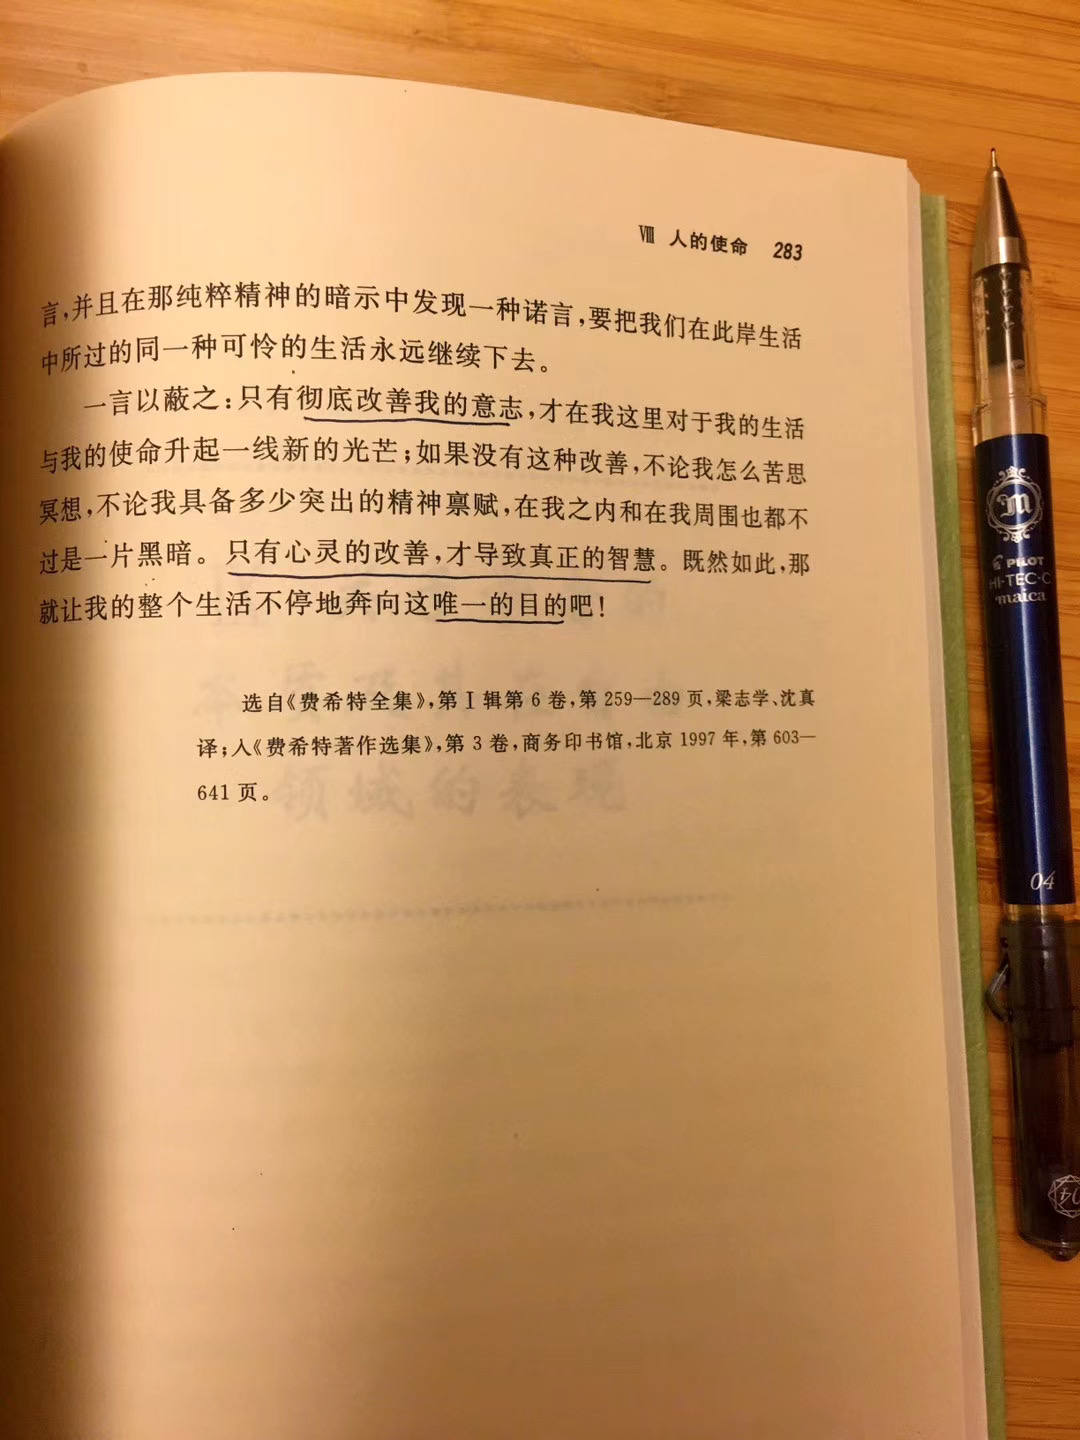 Ⅷ 人的使命 283
言,并且在那纯粹精神的暗示中发现一种诺言,要把我们在此岸生活
中所过的同一种可怜的生活永远继续下去。
一言以蔽之:只有彻底改善我的意志,才在我这里对于我的生活
与我的使命升起一线新的光芒;如果没有这种改善,不论我怎么苦思
冥想,不论我具备多少突出的精神禀赋,在我之内和在我周围也都不
过是一片黑暗。只有心灵的改善,才导致真正的智慧。既然如此,那
就让我的整个生活不停地奔向这唯一的目的吧!
选自《费希特全集》,第Ⅰ辑第6卷,第259—289页,梁志学、沈真
译;人《费希特著作选集》,第3卷,商务印书馆,北京1997年,第603—
641页。
领域的表现
m
PILOT
HI-TEC-C
maica
04
04